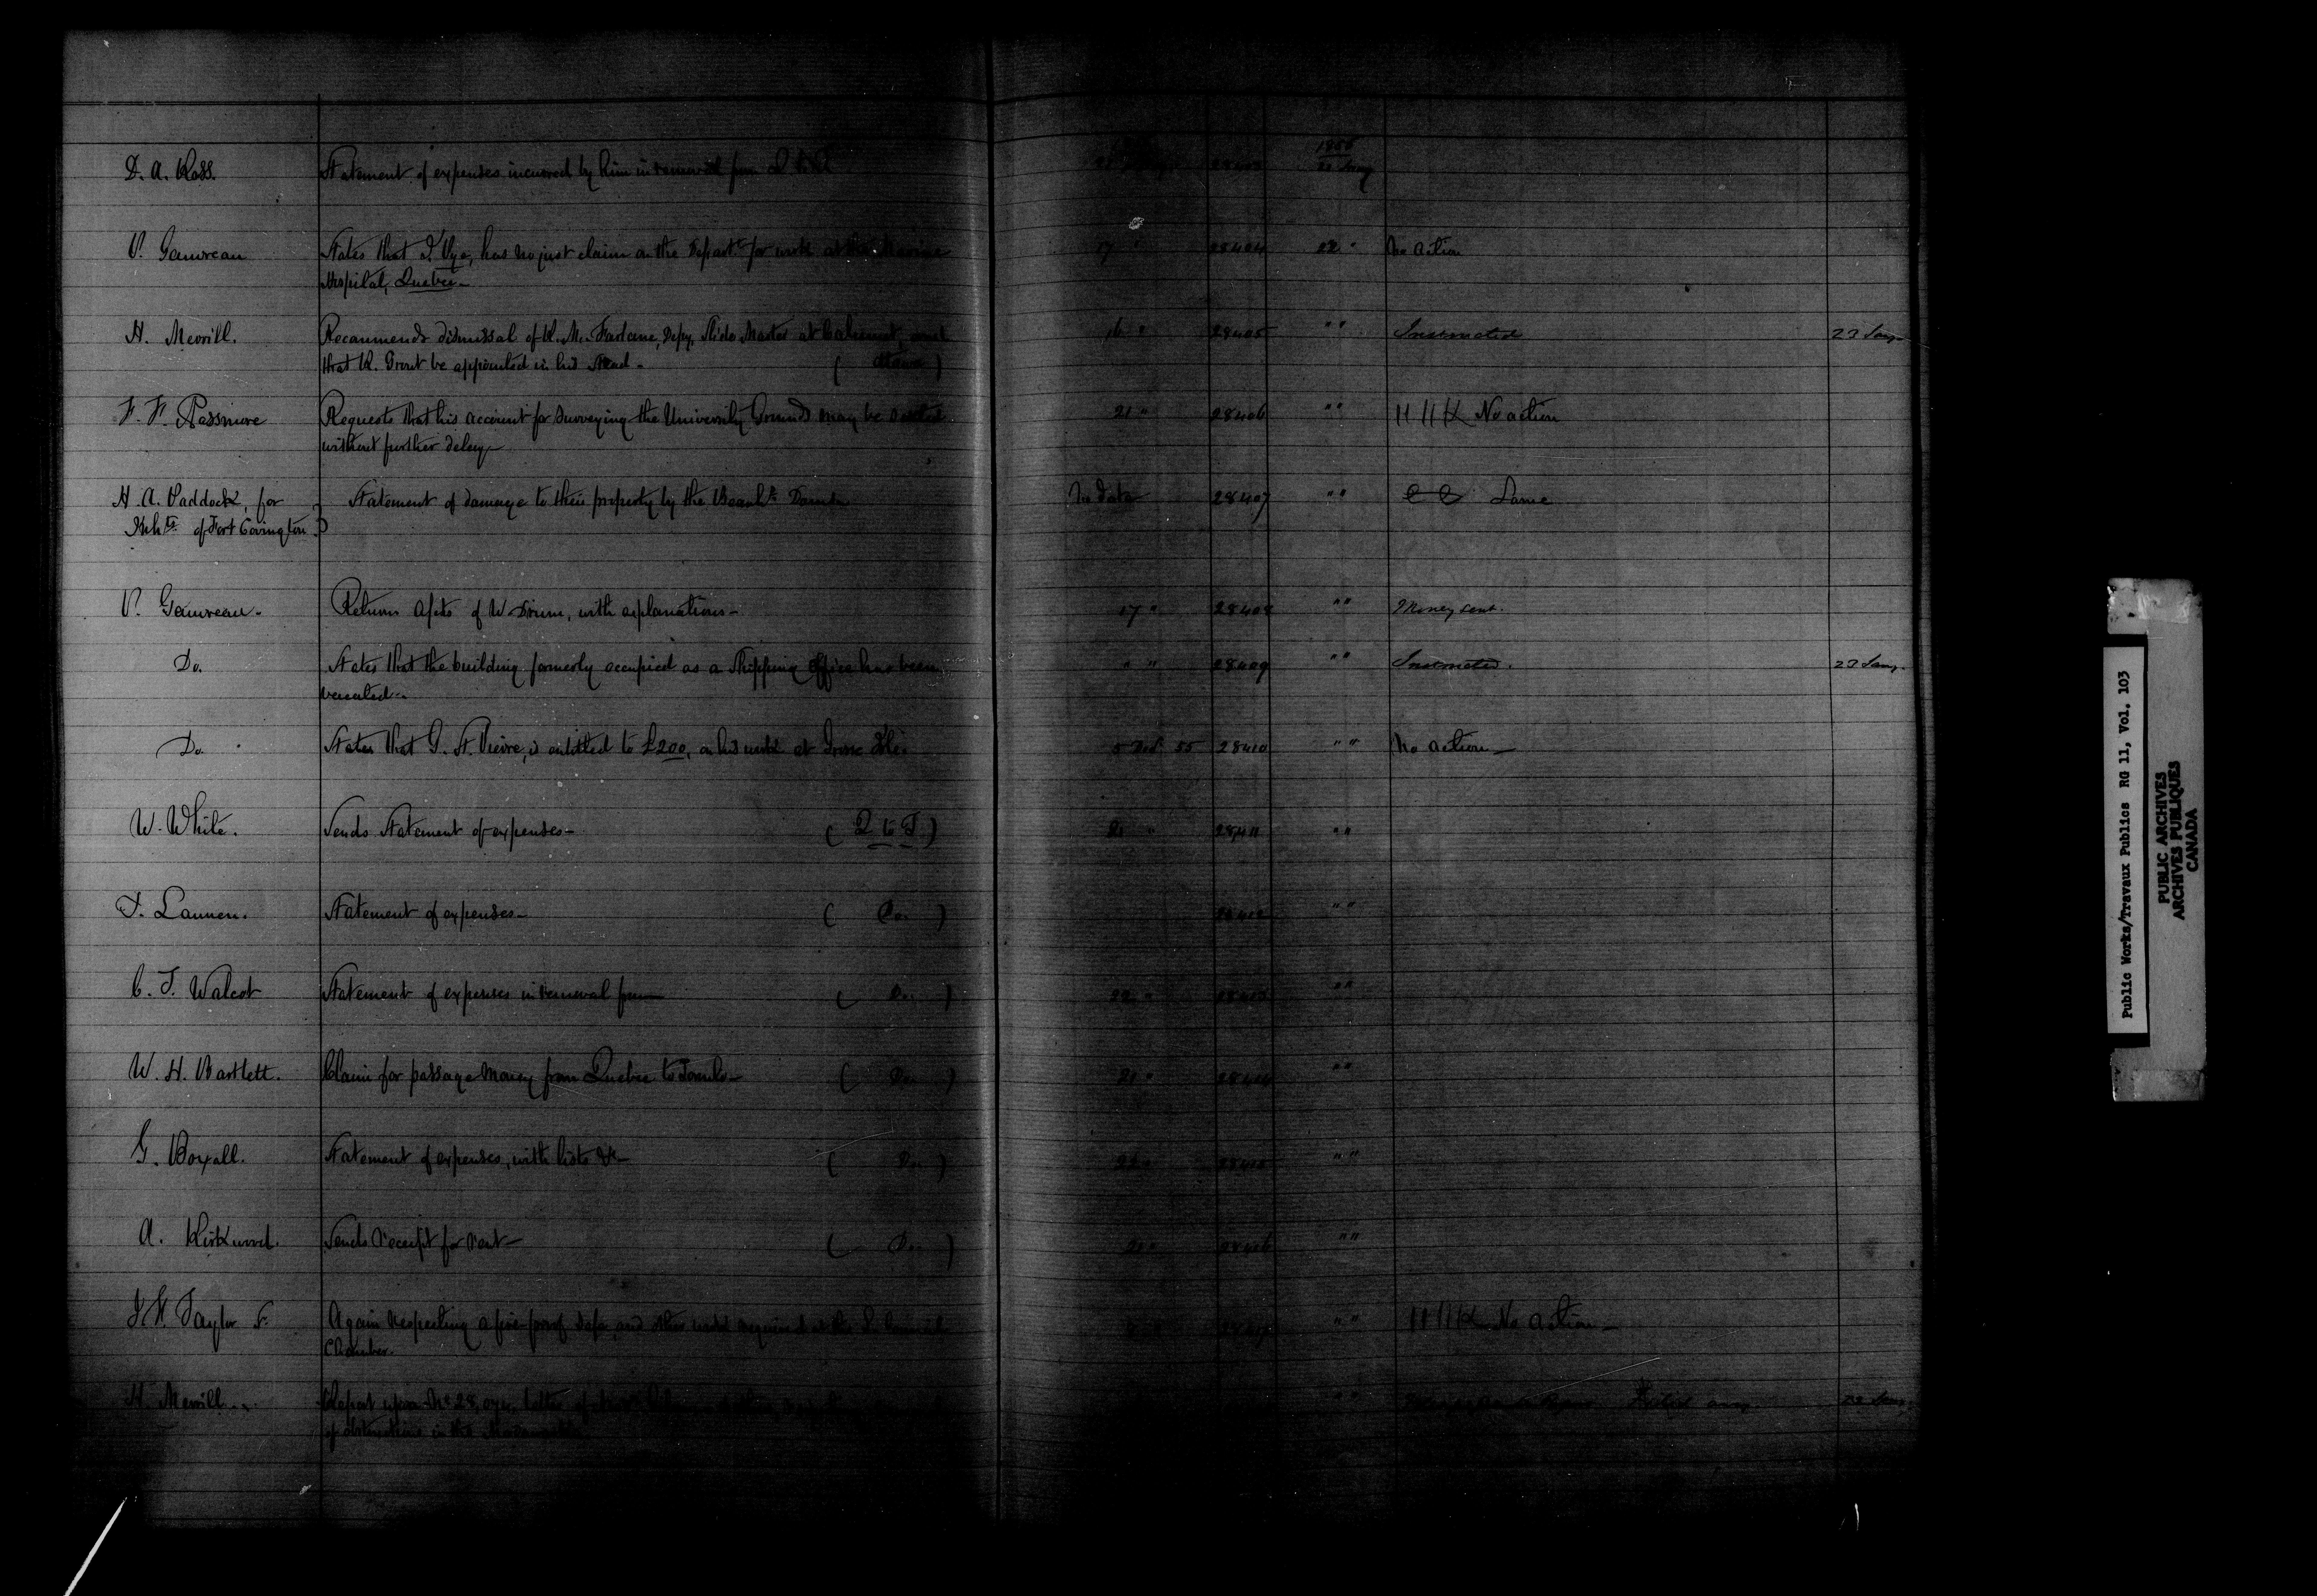 D. A. Ross. Statement of expenses incurred by him in removal from Q to T. 28403 1856 22 Jany
P. Gauvreau States that J. Vye, has no just claim on the Depart.t for work at the Marine 17 " 28404 22 " No action
Hospital, Quebec -
H. Merrill. Recommends dismissal of R. McFarlane, Depy. Slide Master at Calumet, and 16 " 28405 " " Instructed 23 Jany
that R. Grout be appointed in his stead - ( Ottawa )
F. F. Passmore Requests that his account for surveying the University Grounds may be settled 21 " 28406 " " HHK No action
without further delay -
H. A. Paddock, for Statement of damage to their property by the Beauh.s Dams No date 28407 " " Same
Inh.ts of Fort Covington.
P. Gauvreau. Returns Accts of W Drum, with explanations - 17 " 28408 " " Money sent.
Do. States that the building formerly occupied as a Shipping Office has been " " 28409 " " Instructed. 23 Jany.
vacated -
Do. States that G. St. Pierre, is entitled to £200, on his work at Grosse Isle. 5 Dec 55 28410 " " No action -
W. White. Sends Statement of expenses - ( Q to T ) 21 " 28411 " "
T. Lannen. Statement of expenses - ( Do. ) 28412 " "
C. T. Walcot Statement of expenses in removal from ( Do. ) 22 " 28413 " "
W. H. Bartlett. Claim for passage money from Quebec to Toronto - ( Do. ) 21 " 28414 " "
G. Boxall. Statement of expenses, with lists &c - ( Do. ) 28415 " "
A. Kirkwood. Sends receipt for rent - ( Do. ) 28416 " "
J. F. Taylor Again respecting a fire-proof safe, and other work required at the L. Council 28417 " " HHK No action -
Chamber.
H. Merrill Report upon No 28, letter of " " 23 Jany.
of obstructions in the Madawaska
Public Works/Travaux Publics RG 11, Vol. 103
PUBLIC ARCHIVES
ARCHIVES PUBLIQUES
CANADA